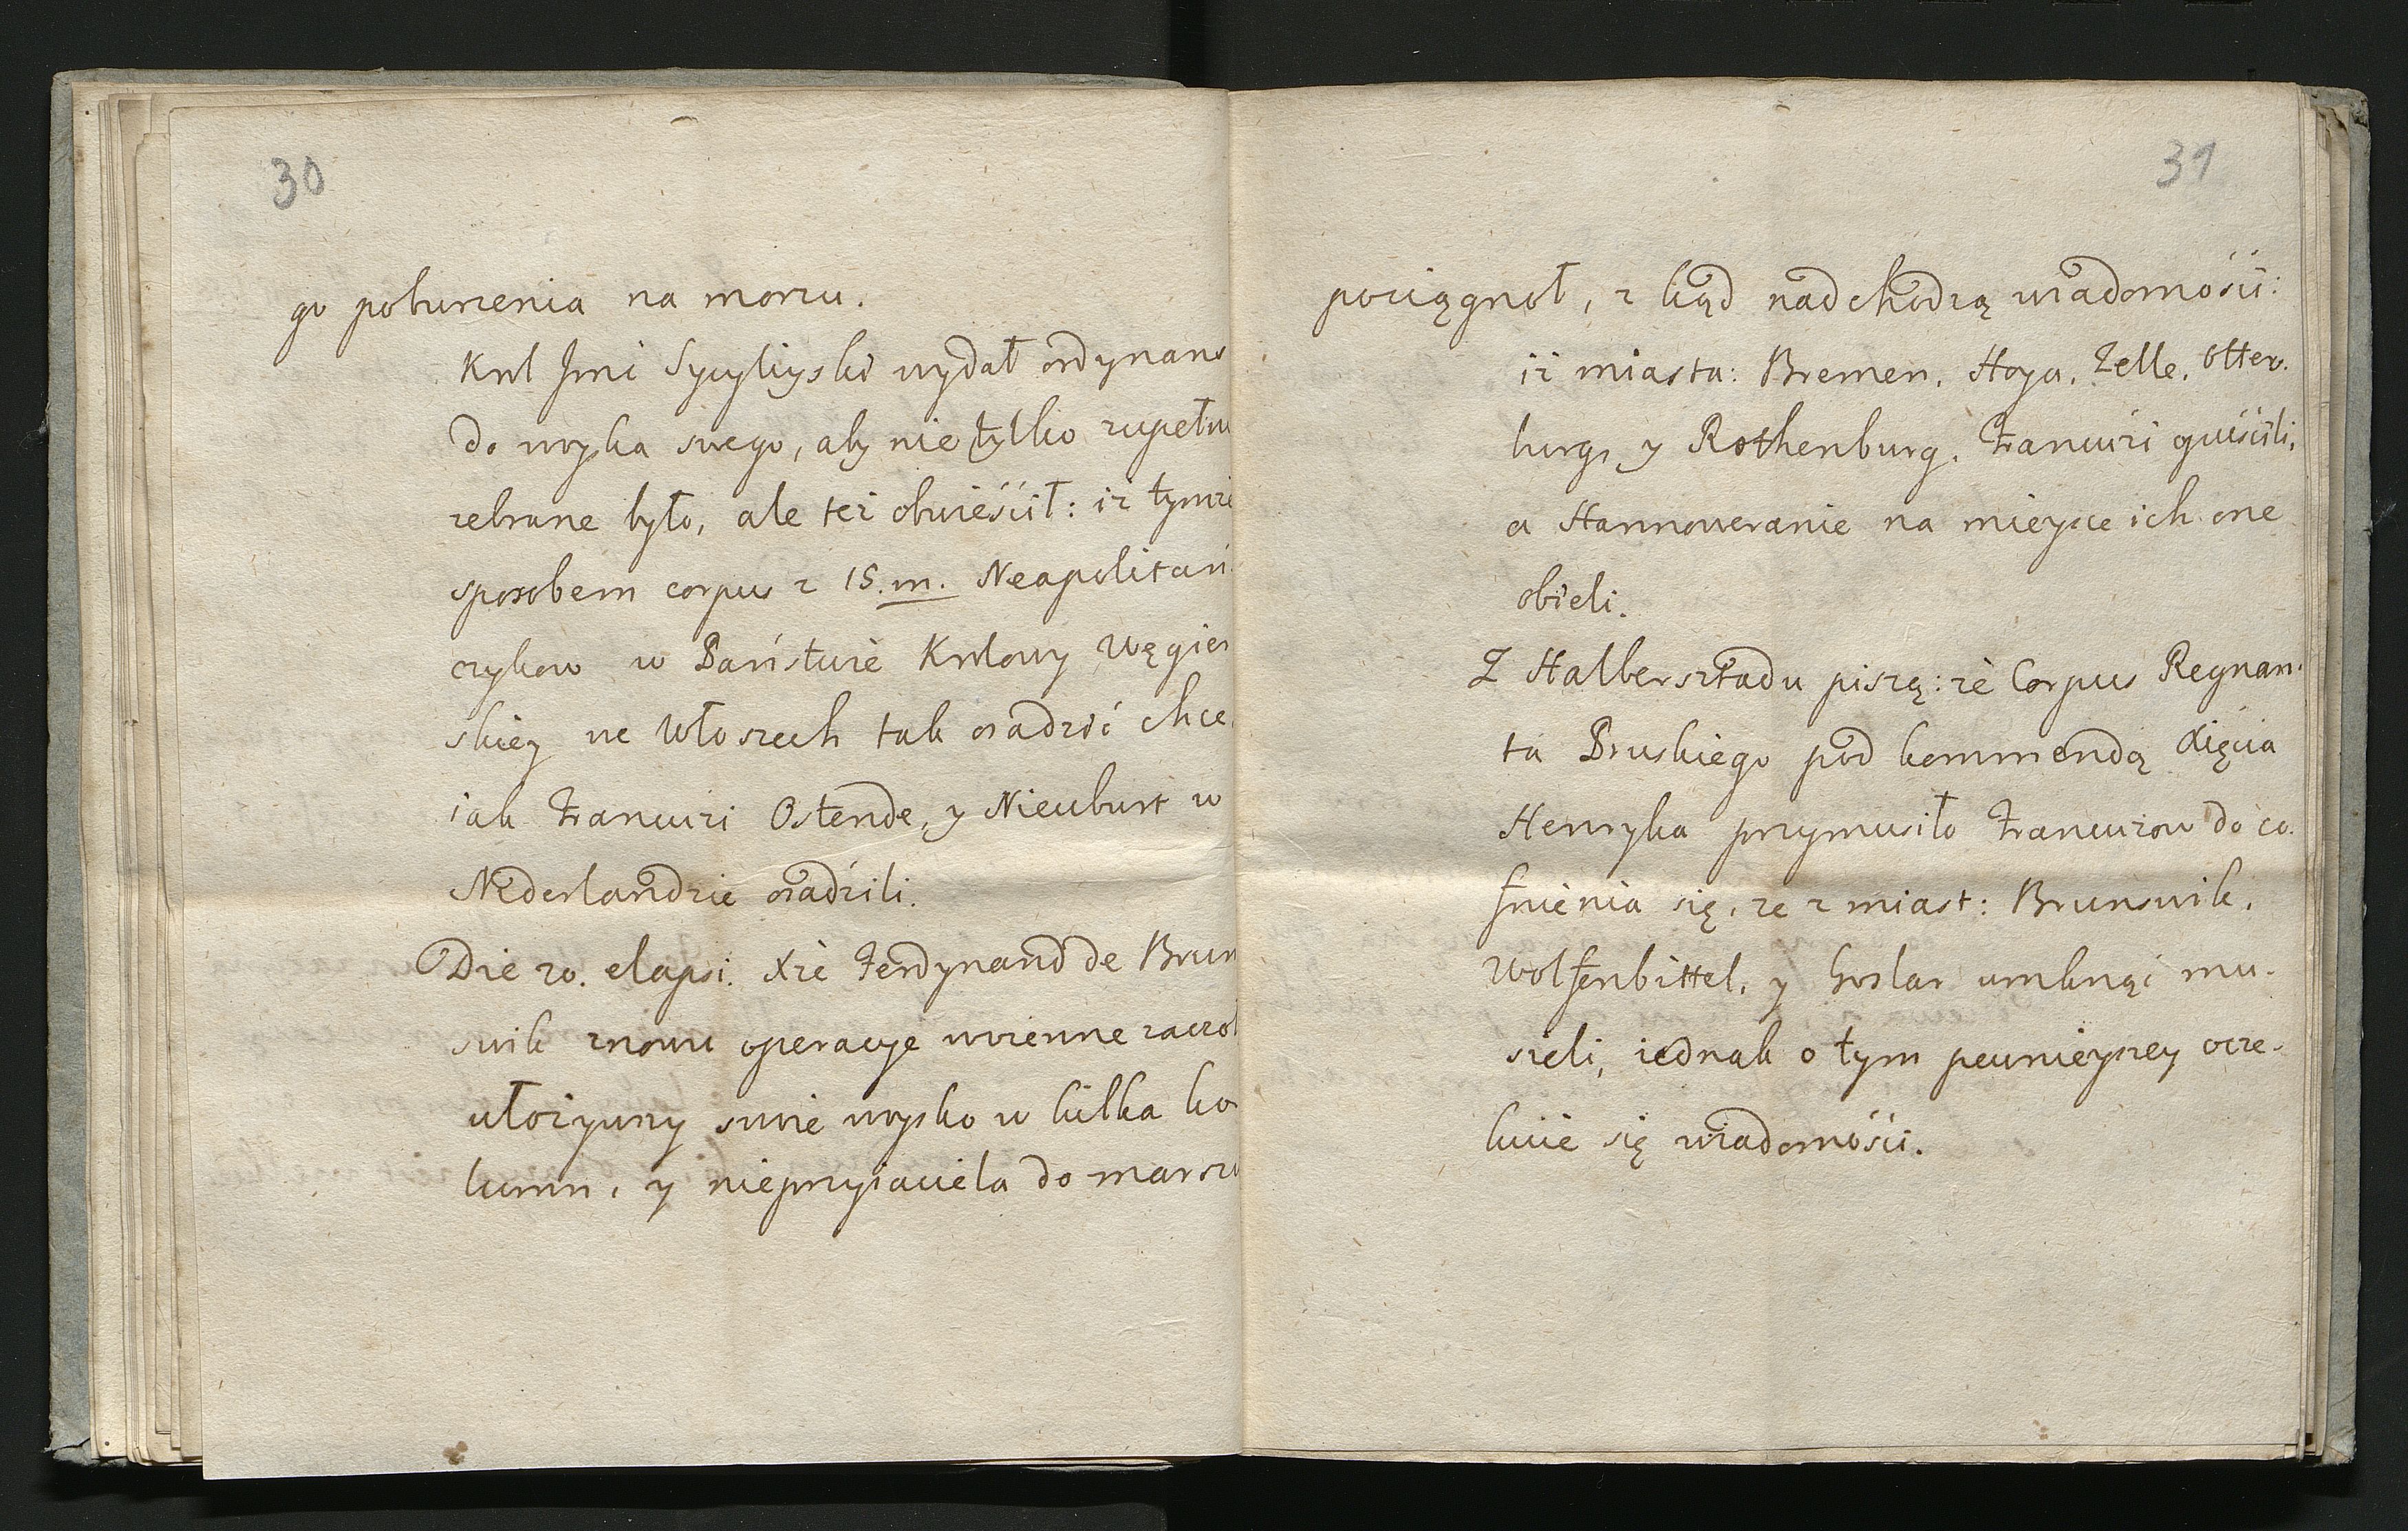 30
go poburzenia na morzu.
Krol Jmć Sycyliyski wydał ordynans
do woyska swego, aby nie tylko zupełn
zebrane było, ale też obwieścił: iż tymże
sposobem corpus z 15.m. Neapolitań
czykow w Państwie Krolowy Węgier
skiey we Włoszech tak osadzić chce,
iak Francuzi Ostende, y Nieuburt w
Nederlandzie osadzili.
Die 20. elapsi. Xże Ferdynand de Brun
swik znowu operacye woienne zaczoł
ułożywszy swoie woysko w kilka ko
lumn, y nieprzyiaciela do marszu
31
pociągnoł, z kąd nadchodzą wiadomości:
iż miasta: Bremen, Hoya, Zelle, Otter.
burg, y Rothenburg, Francuzi opuścili,
a Hannoweranie na mieysce ich one
obieli.
Z Halbersztadu piszą: że Corpus Regnan.
ta Pruskiego pod kommendą Xięcia
Henryka przymusiło Francuzow do co.
fnienia się, że z miast: Brunswik,
Wolfenbittel, y Goslar umknąć mu.
sieli, iednak o tym pewnieyszey ocze.
kuie się wiadomości.